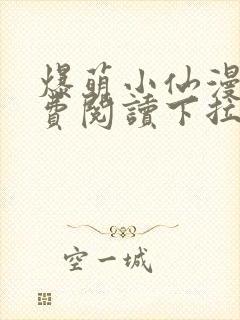 爆萌小仙漫
費閱讀下拉
空一城